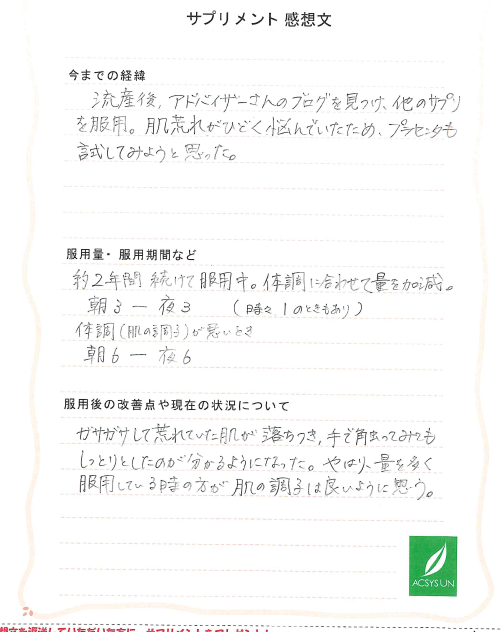 サプリメント 感想文
今までの経緯
流産後、アドバイザーさんのブログを見つけ、他のサプリ
を服用。肌荒れがひどく悩んでいたため、プラセンタも
試してみようと思った。
服用量・服用期間など
約2年間 続けて服用中。体調に合わせて量を加減。
朝3 ー 夜3 (時々1のときもあり)
体調(肌の調子)が悪いとき
朝6 ー 夜6
服用後の改善点や現在の状況について
ガサガサして荒れていた肌が落ちつき、手で触ってみても
しっとりとしたのが分かるようになった。やはり、量を多く
服用している時の方が肌の調子は良いように思う。
ACSYSUN